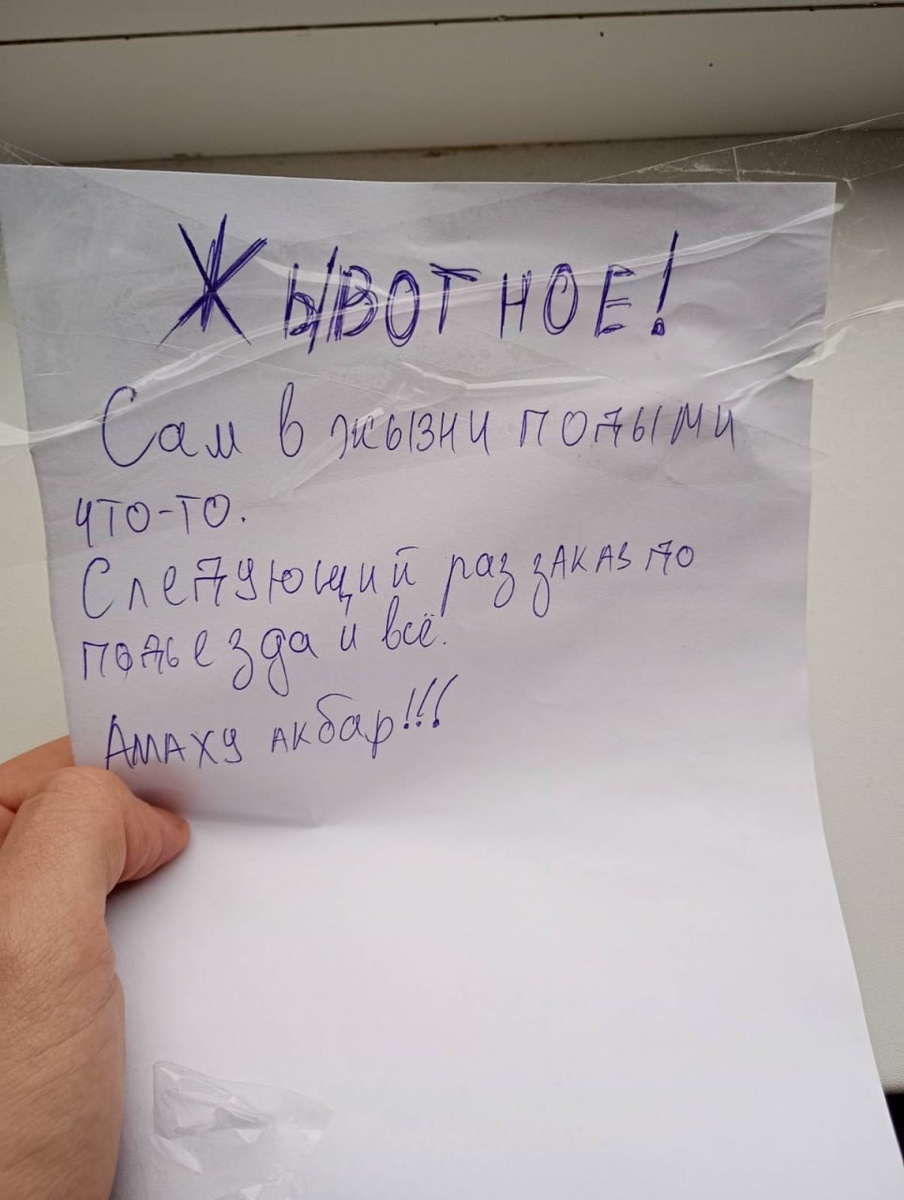 Жывотное!
Сам в жызни подыми
что-то.
Следующий раз заказ до
подьезда и всё.
Амаху акбар!!!